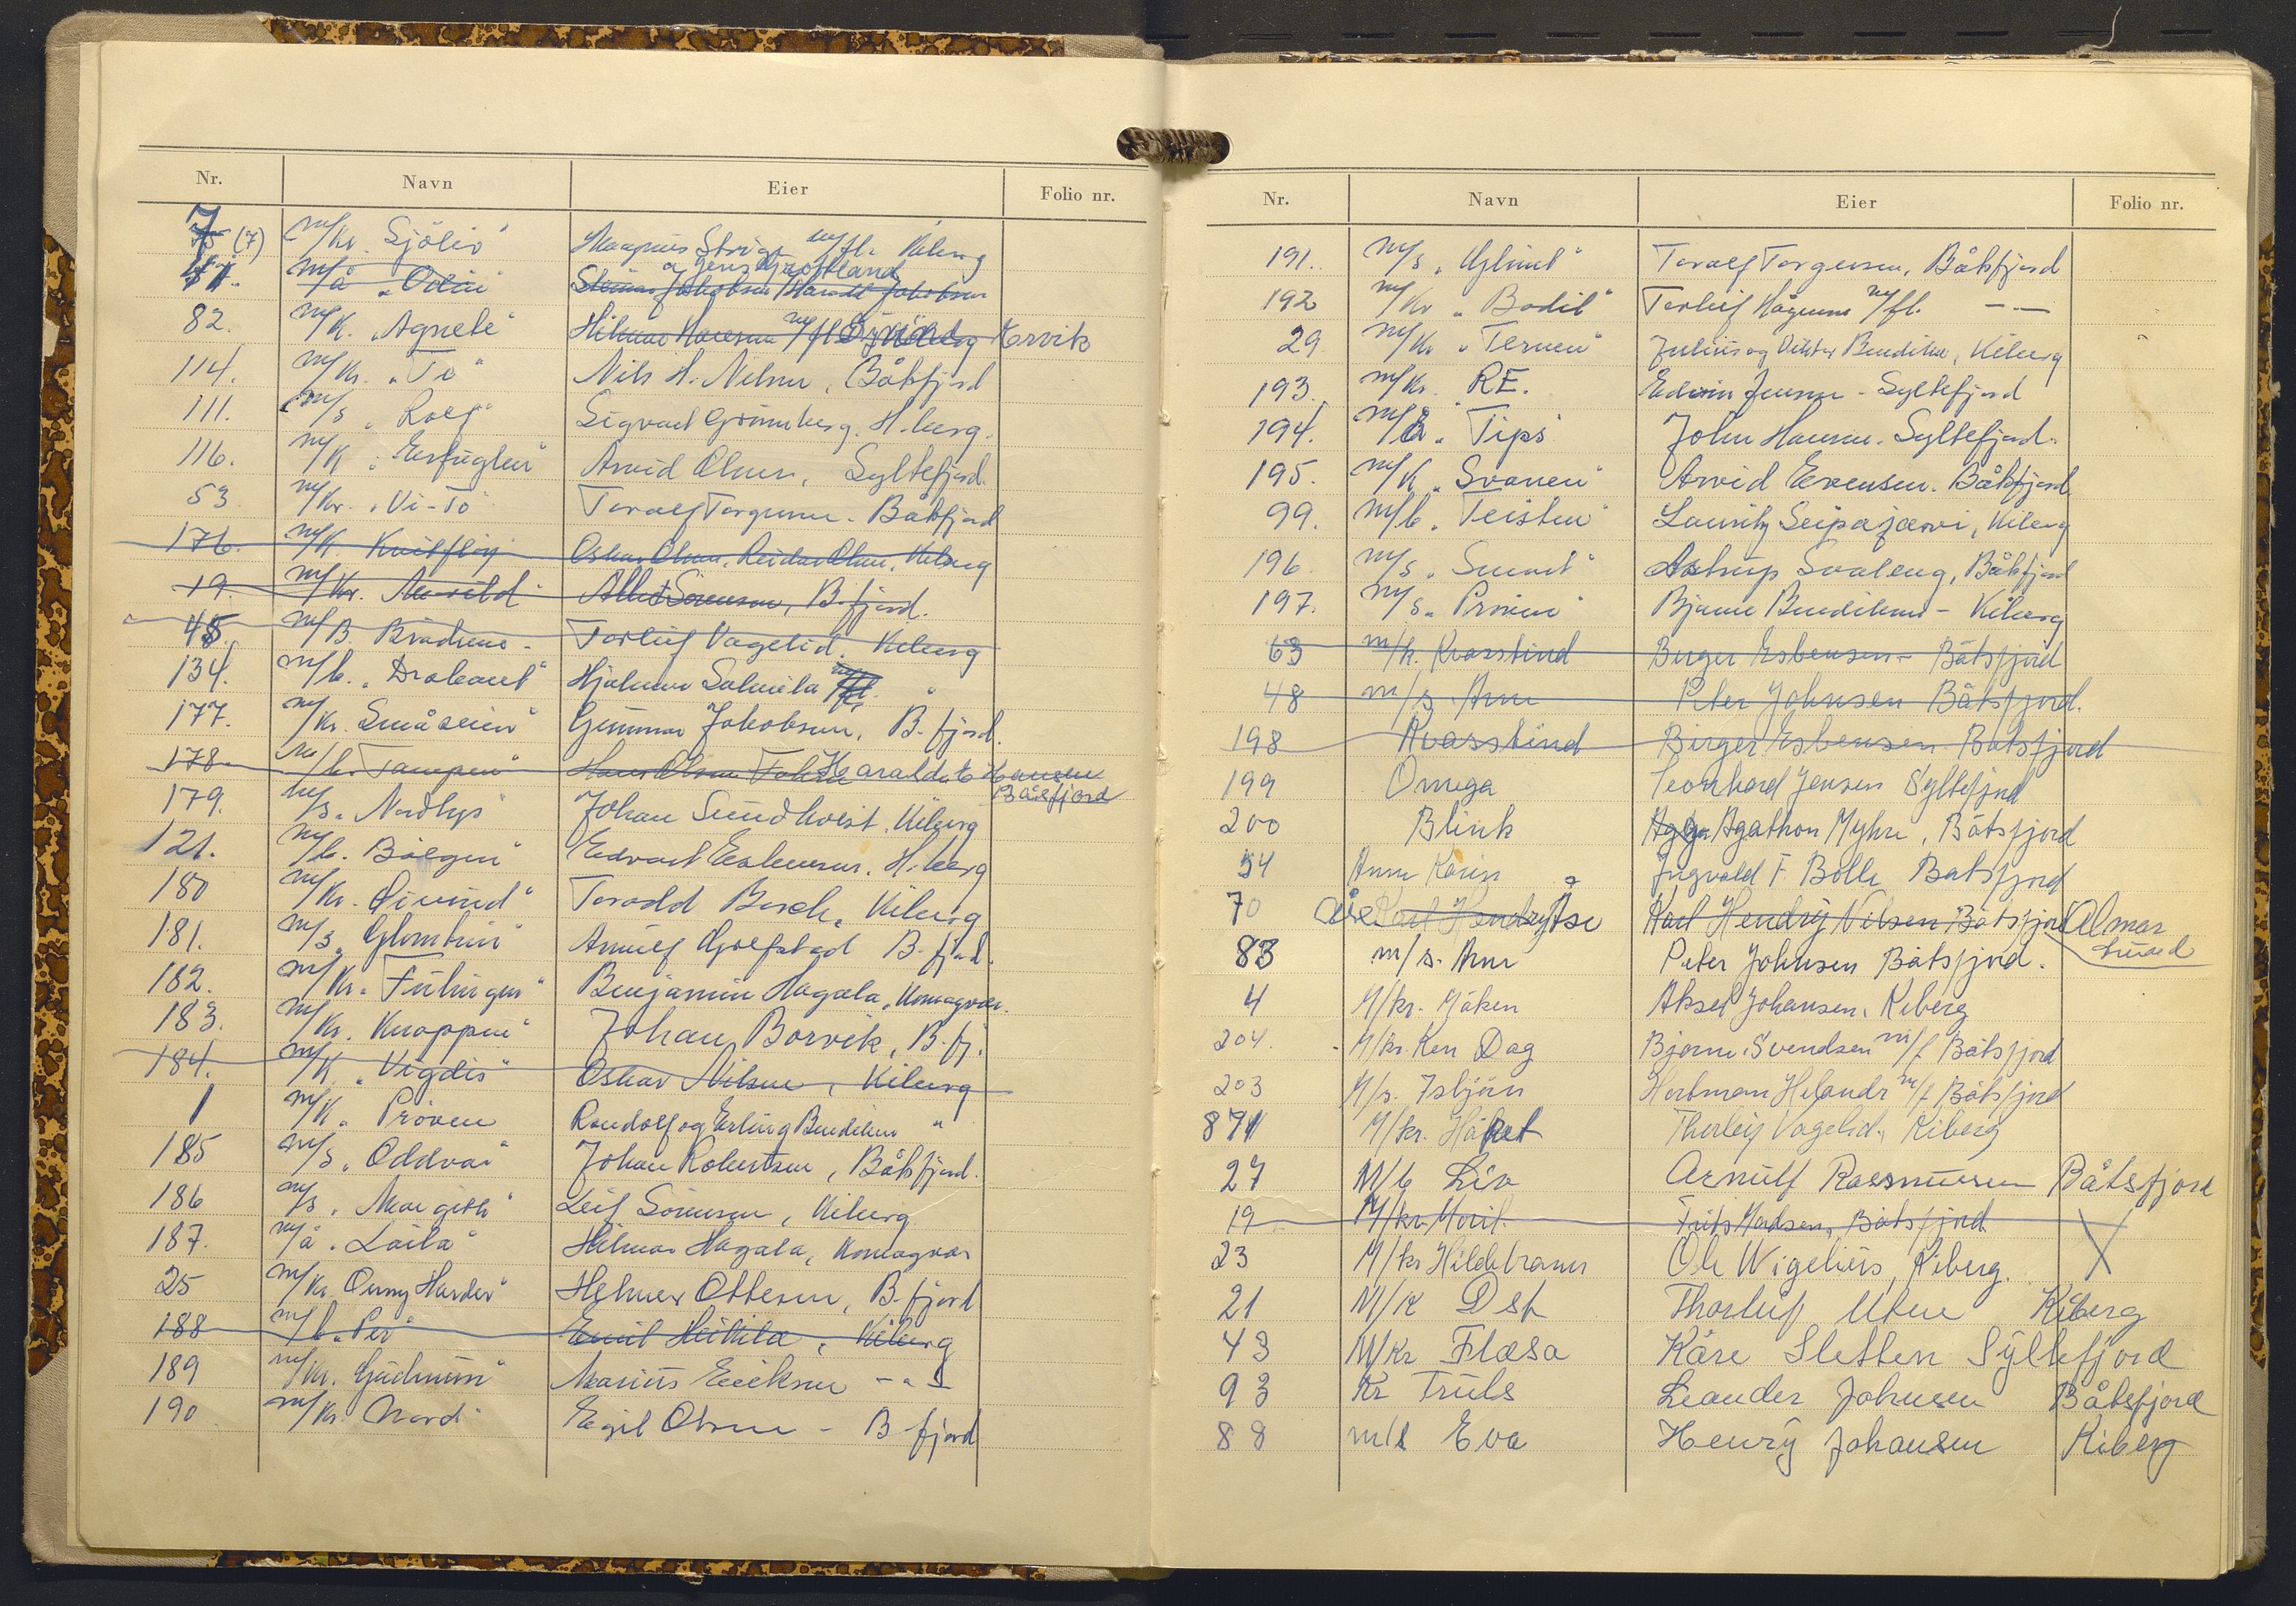 Nr. Navn Eier Folio nr.
7 (7) m/kr. Sjöliv" m/fl. Kiberg
m/å "Odin"
82. m/k. "Agnete"
114. m/kr. "To" Nils H. Nilsen, Båtsfjord
111. m/s "Rolf" Sigvart Grönnberg. H.berg.
116. m/k "Erfuglen" Arvid Olsen, Syltefjord.
53 m/kr. "Vi-To" Toralf Torgersen. Båtsfjord
176. m/k. Kvitfloy Oskar Olsen, Reidar Olsen, Kiberg
19. m/kr. Sörensen, B.fjord.
45. m/B. Torleif Vagelid. Kiberg
134. m/b. "Drabant" Hjalmar Salmila m/fl. "
177. m/kr. Gunnar Jakobsen, B.fjord.
178 m/b. Tampen" Harald E Hansen
Båtsfjord
179. m/s. "Nordlys" Johan Sundkvist, Kiberg
121. m/b. Bölgen" Edvart Esbensen. H.berg
180 m/kr. Öivind" Torodd Besch, Kiberg
181. m/s "Glomtun" Arnulf Golfstad B.fjord.
182. m/kr. Benjamin Hagala, Komagvær.
183. m/kr. Knoppen" Johan Borvik, B.fj.
184. m/k. "Vigdis" Oskar Nilsen, Kiberg
1 m/k. "Pröven Randolf og Erling Bendiksen "
185 m/s. "Oddvar" Johan Robertsen, Båtsfjord.
186 m/s. "Margith" Leif Sörensen, Kiberg
187. m/å. "Laila" Hilmar Hagala, Komagvær
25 m/kr. Onny Harder" Helmer Ottesen, B.fjord
188 m/b. "Per" Emil Heikkila, Kiberg
189 m/kr. Gudmun" Marius Eriksen - " -
190 m/kr. Nord" Egil Olsen - B fjord
Nr. Navn Eier Folio nr.
191. m/s "Glimt" Toralf Torgersen, Båtsfjord
192 m/kr "Bodil" Torleif m/fl. - -
29 m/kr "Ternen" Julius og Bendiksen, Kiberg
193. m/kr. RE. Edvin Jensen - Syltefjord
194. m/å. "Tips" John Hansen. Syltefjord.
195. m/k "Svanen" Arvid Evensen. Båtsfjord
99. m/b. "Teisten" Lauritz Seipajærvi, Kiberg
196 m/s. Astrup Svaleng, Båtsfjord
197. m/s. Bjarne Bendiksen - Kiberg
63 m/k. Kvasstind Birger Esbensen - Båtsfjord
48 m/s Ann Peter Johnsen Båtsfjord.
198 Kvasstind Birger Esbensen Båtsfjord
199 Omega Leonhard Jensen Syltefjord
200 Blink Agathon Myhre, Båtsfjord
54 Ann Karin Ingvald F. Bolle Båtsfjord
70 Karl Hendry Karl Hendry Nilsen Båtsfjord Almar
Lund
83 m/s. Ann Peter Johnsen Båtsfjord.
4 M/kr. Måken Aksel Johansen, Kiberg
204. M/kr. Ken Dag Bjarne Svendsen m/f Båtsfjord
203 M/s. Isbjörn Hertman Helandr m/f Båtsfjord
871 M/kr. Håpet Thorleif Vagelid, Kiberg
27 M/b Liv Arnulf Rassmussen Båtsfjord
19 M/kr. Morit. Frits Madsen, Båtsfjord
23 M/kr Hildebrann Ole Wigelius, Kiberg.
21 M/K Dst Thorleif Utne Kiberg
43 M/Kr Flæsa Kåre Sletten Syltefjord
93 Kr Truls Leander Johnsen Båtsfjord
88 m/s Eva Henry Johansen Kiberg